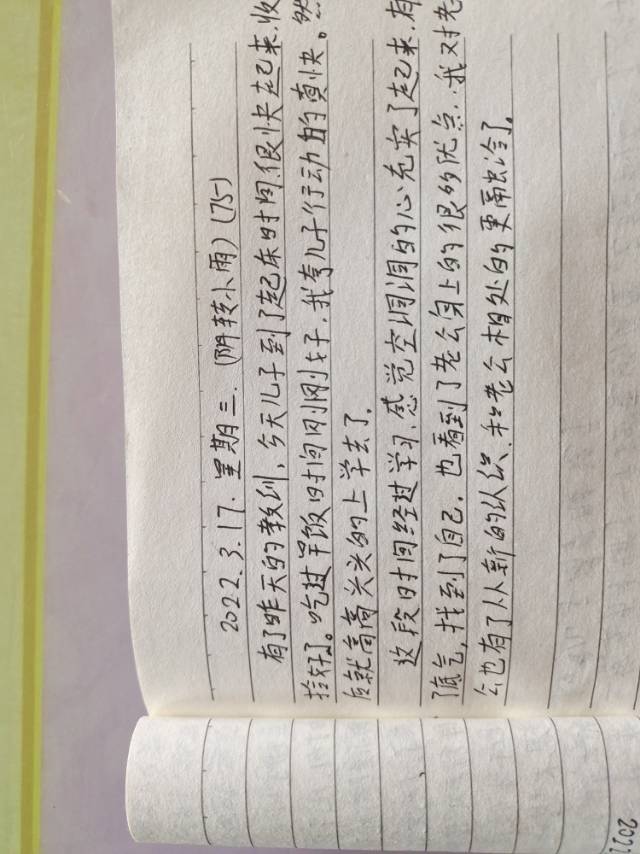 2022.3.17.星期三.(阴转小雨)(75)
有了昨天的教训,今天儿子到了起床时间很快起来.收
拾好了。吃过早饭时间刚刚好.我夸儿子行动的真快。然
后就高高兴兴的上学去了.
这段时间经过学习.感觉空洞洞的心充实了起来.有
了底气,找到了自己.也看到了老公身上的很多优点..我对老
公也有了从新的认识.和老公相处的更融洽了.
202